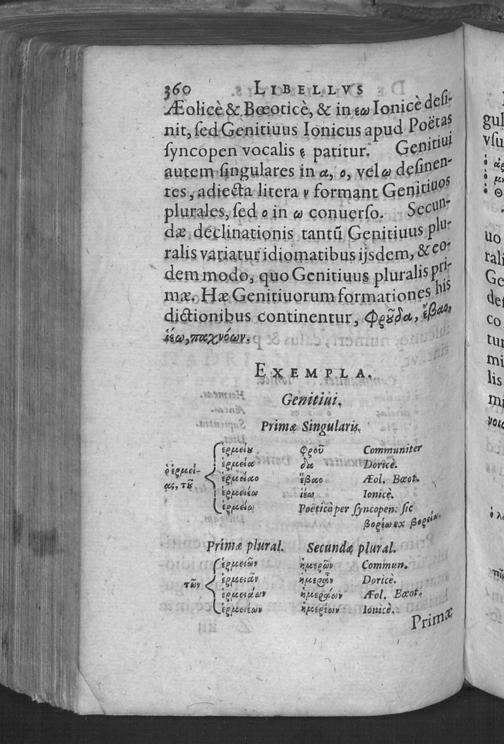 360 LIBELLVS
Æolicè & Bœoticè, & in εω Ionicè desi-
nit, sed Genitiuus Ionicus apud Poëtas
syncopen vocalis ε patitur. Genitiui
autem singulares in α, ο, vel ω desinen-
tes, adiecta litera ν formant Genitiuos
plurales, sed ο in ω conuerso. Secun-
dæ declinationis tantũ Genitiuus plu-
ralis variatur idiomatibus ijsdem, & eo-
dem modo, quo Genitiuus pluralis pri-
mæ. Hæ Genitiuorum formationes his
dictionibus continentur, φροῦδα, ἔβαο,
ἱέω, παχνόων.
EXEMPLA.
Genitiui.
Primæ Singularis.
ἑρμείου φροῦ Communiter
ἑρμεία δα Doricè.
ὁ ἑρμεί- ἑρμείαο ἔβαο Æol. Bœot.
ας, τοῦ ἑρμειέω ἱέω Ionicè.
ἑρμείω Poëticè per syncopen: sic
βορέω ex βορείω.
Primæ plural. Secundæ plural.
ἑρμειῶν ἡμερῶν Commun.
τῶν ἑρμειᾶν ἡμερᾶν Doricè.
ἑρμειάων ἡμεράων Æol. Bœot.
ἑρμειέων ἡμερέων Ionicè.
Primæ